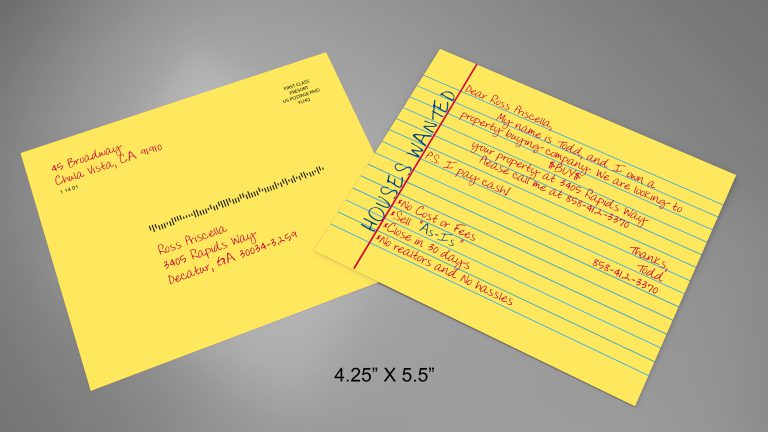 FIRST CLASS
PRESORT
US POSTAGE PAID
YLHQ
45 Broadway
Chula Vista, CA 91910
1 14 01
Ross Priscella
3405 Rapids Way
Decatur, GA 30034-3259
HOUSES WANTED
Dear Ross Priscella,
My name is Todd, and I own a
property buying company. We are looking to
$BUY$
your property at 3405 Rapids Way
Please call me at 858-412-3370
P.S. I pay cash!
Thanks,
Todd
858-412-3370
*No Cost or Fees
*Sell "As-Is"
*Close in 30 days
*No realtors and No hassles
4.25" X 5.5"